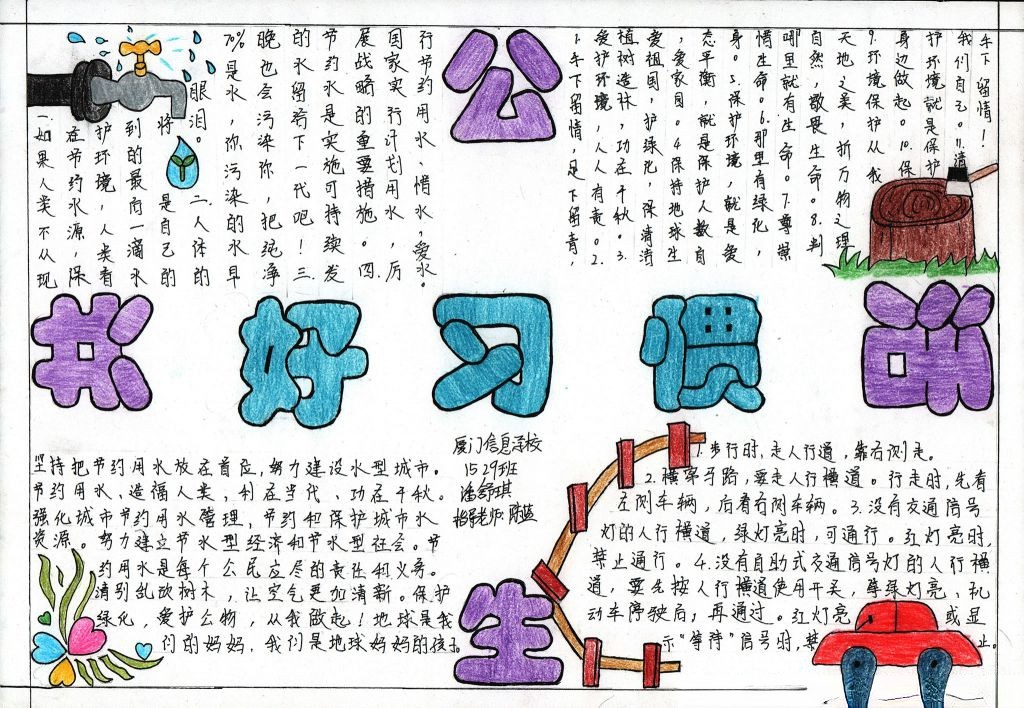 公
一.如果人类不从现
在节约水源,保
护环境,人类看
到的最后一滴水
将是自己的
眼泪。二.人体的
70%是水,你污染的水早
晚也会污染你,把纯净
的水留给下一代吧!三.
节约水是实施可持续发
展战略的重要措施。四.
国家实行计划用水,厉
行节约用水、惜水,爱水。
1.手下留情,足下留青,
爱护环境,人人有责。2.
植树造林,功在千秋。3.
爱祖国,护绿化,保清洁
,爱家园。4.保持地球生
态平衡,就是保护人类自
身。5.保护环境,就是爱
惜生命。6.那里有绿化,
哪里就有生命。7.尊崇
自然,敬畏生命。8.判
天地之美,析万物之理
9.环境保护从我
身边做起。10.保
护环境就是保护
我们自己。11.请
手下留情!
好习惯
坚持把节约用水放在首位,努力建设水型城市。
节约用水、造福人类,利在当代、功在千秋。
强化城市节约用水管理,节约和保护城市水
资源。努力建立节水型经济和节水型社会。节
约用水是每个公民应尽的责任和义务。
请别乱砍树木,让空气更加清新。保护
绿化,爱护公物,从我做起!地球是我
们的妈妈,我们是地球妈妈的孩子。
厦门信息学校
1529班
潘舒琪
指导老师:
生
1.步行时,走人行道,靠右侧走。
2.横穿马路,要走人行横道。行走时,先看
左侧车辆,后看右侧车辆。3.没有交通信号
灯的人行横道,绿灯亮时,可通行。红灯亮时,
禁止通行。4.没有自助式交通信号灯的人行横
道,要先按人行横道使用开关,等绿灯亮、机
动车停驶后,再通过。红灯亮 或显
示“等待”信号时,禁 止。